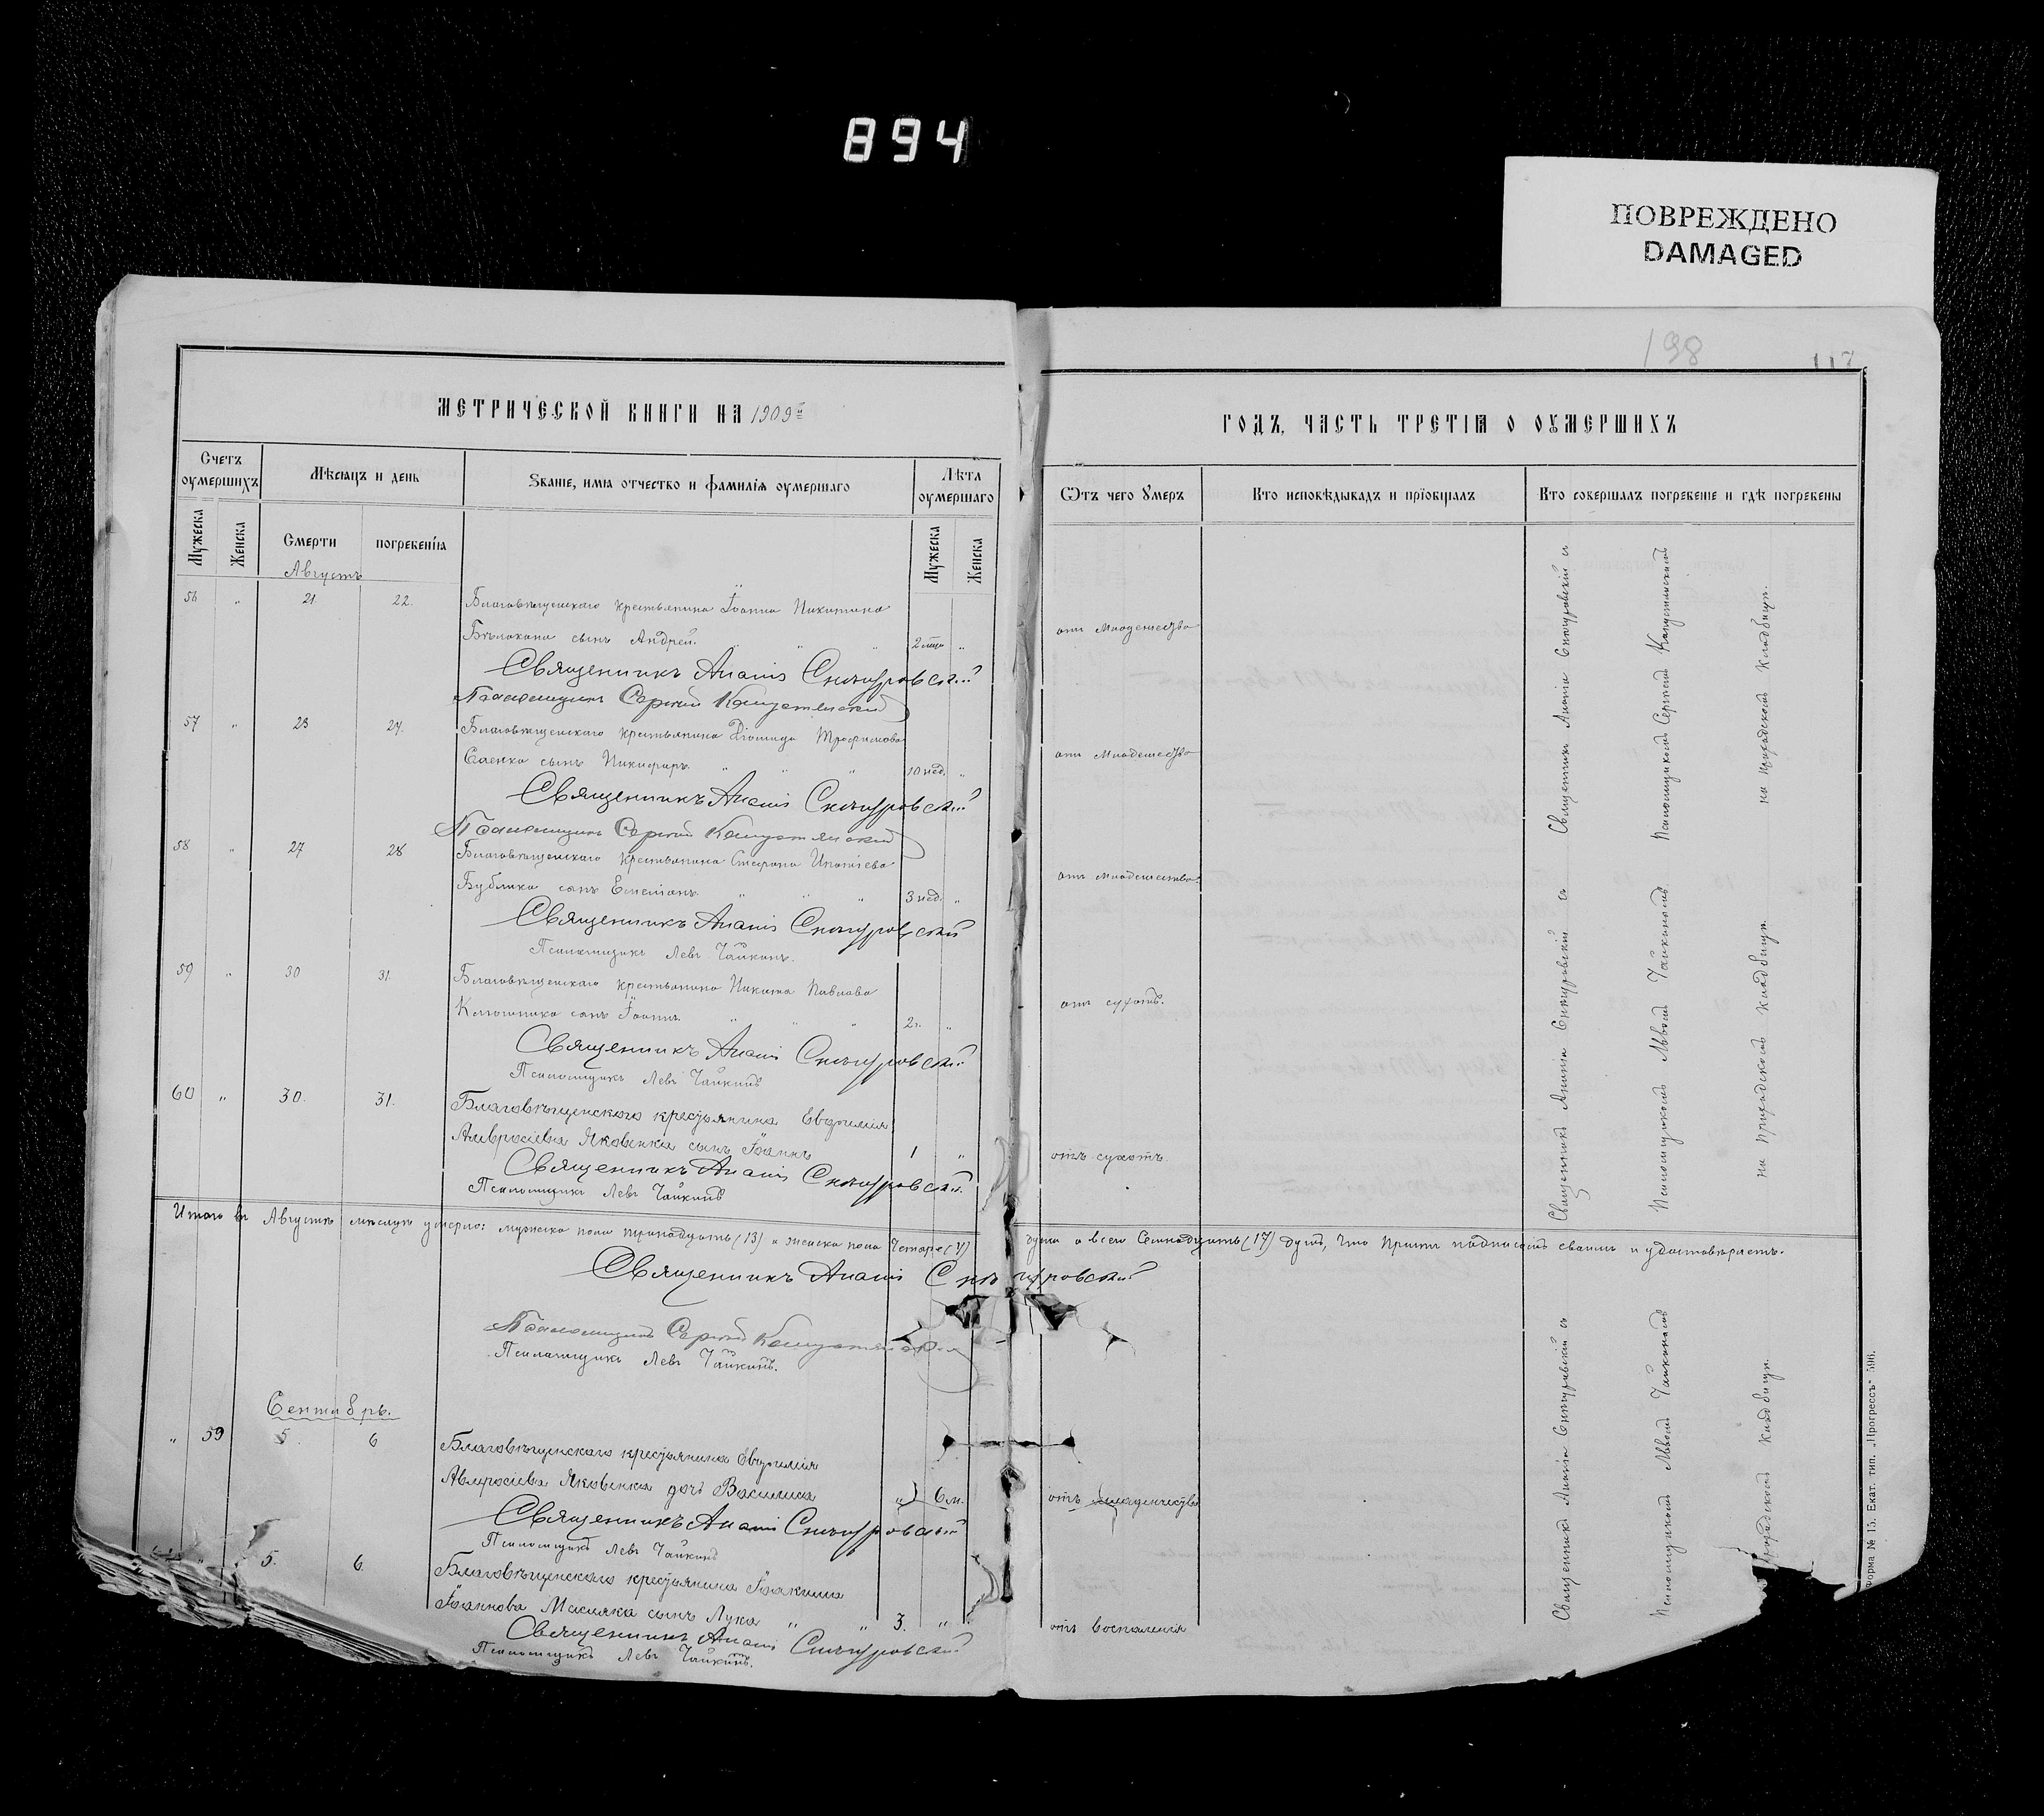 894
ПОВРЕЖДЕНО
DAMAGED
198
117
МЕТРИЧЕСКОЙ КНИГИ НА 1909й
ГОДЪ, ЧАСТЬ ТРЕТІѦ О ОУМЕРШИХЪ
Счетъ оумершихъ
Мѣсяцъ и день
Званіе, имя отчество и фамилія оумершаго
Лѣта оумершаго
Ѿтъ чего Умеръ
Кто исповѣдывалъ и пріобщалъ
Кто совершалъ погребеніе и гдѣ погребены
Мужеска
Женска
Смерти
погребенія
Мужеска
Женска
Августъ
56 " 21. 22. Благовѣщенскаго крестьянина Іоанна Никитина
Бѣлокона сынъ Андрей. " " " "
отъ младенчества
Священникъ Ананія Снѣгуровскій
Псаломщикъ Сергій Капустянскій
57 " 23 24. Благовѣщенскаго крестьянина Діомида Трофимова
Саенка сынъ Никифоръ. " " " 10 нед. "
отъ младенчества
Священникъ Ананія Снѣгуровскій
Псаломщикъ Сергій Капустянскій
58 " 27 28 Благовѣщенскаго крестьянина Стефана Ипатіева
Бублика сынъ Емеліанъ. " " 3 нед. "
отъ младенчества.
Священникъ Ананія Снѣгуровскій
Псаломщикъ Левъ Чайкинъ.
59 " 30 31. Благовѣщенскаго крестьянина Никита Павлова
сынъ Іоаннъ. " " " 2 г. "
отъ сухотъ.
Священникъ Ананія Снѣгуровскій
Псаломщикъ Левъ Чайкинъ
60 " 30. 31. Благовѣщенскаго крестьянина Евфимія
Амвросіева Яковенка сынъ Іоаннъ 1 "
отъ сухотъ.
Священникъ Ананія Снѣгуровскій
Псаломщикъ Левъ Чайкинъ
Священникъ Ананія Снѣгуровскій съ
Псаломщикомъ Сергіемъ Капустянскимъ
на приходскомъ кладбищѣ.
Священникъ Ананія Снѣгуровскій съ
Псаломщикомъ Львомъ Чайкинымъ
на приходскомъ кладбищѣ.
Итого въ Августѣ мѣсяцѣ умерло: мужска пола тринадцать (13) и женска пола четыре (4) душъ а всего Семнадцать (17) душъ, что причтъ подписомъ своимъ и удостовѣряетъ.
Священникъ Ананія Снѣгуровскій
Псаломщикъ Сергій Капустянскій
Псаломщикъ Левъ Чайкинъ.
Сентябрь.
" 59 5. 6 Благовѣщенскаго крестьянина Евфимія
Амвросіева Яковенка дочь Василиса " 6 м.
отъ младенчества
Священникъ Ананія Снѣгуровскій
Псаломщикъ Левъ Чайкинъ
" 5. 6. Благовѣщенскаго крестьянина Іоакима
Іоаннова Масляка сынъ Лука " " 3. "
отъ воспаленія
Священникъ Ананія Снѣгуровскій
Псаломщикъ Левъ Чайкинъ.
Священникъ Ананія Снѣгуровскій съ
Псаломщикомъ Львомъ Чайкинымъ
приходскомъ кладбищѣ.
Форма № 15. Екат. тип. „Прогрессъ" 596.